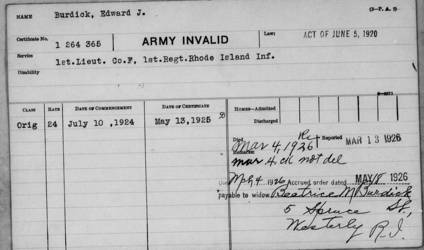 NAME Burdick, Edward J. (3-P.A.S)
Certificate No. 1 264 365 ARMY INVALID Law: ACT OF JUNE 5, 1920
Service 1st.Lieut. Co.F, 1st.Regt.Rhode Island Inf.
Disability
CLASS RATE DATE OF COMMENCEMENT DATE OF CERTIFICATE HOMES—Admitted
Discharged
Orig 24 July 10 ,1924 May 13,1925
Died Mar 4, 1926 Reported MAR 13 1926
Mar 4. ck not del
1926 Accrued order dated MAY 1926
payable to widow Beatrice M Burdick
5 Spruce St,
Westerly R.I